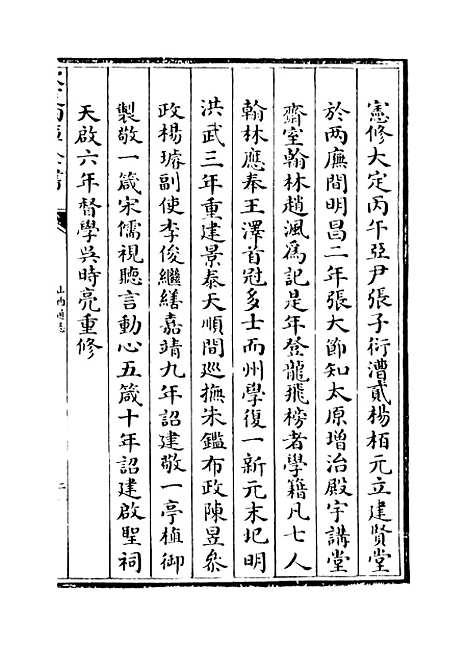 憲修大定丙午亞尹張子衍漕貳楊栢元立建賢堂
於两廡間明昌二年張大節知太原增治殿宇講堂
齋室翰林趙渢爲記是年登龍飛榜者學籍凡七人
翰林應奉王澤首冠多士而州學復一新元末圮明
洪武三年重建景泰天順間巡撫朱鑑布政陳昱叅
政楊璿副使李俊繼繕嘉靖九年詔建敬一亭植御
製敬一箴宋儒視聽言動心五箴十年詔建啟聖祠
天啟六年督學吳時亮重修
山西通志